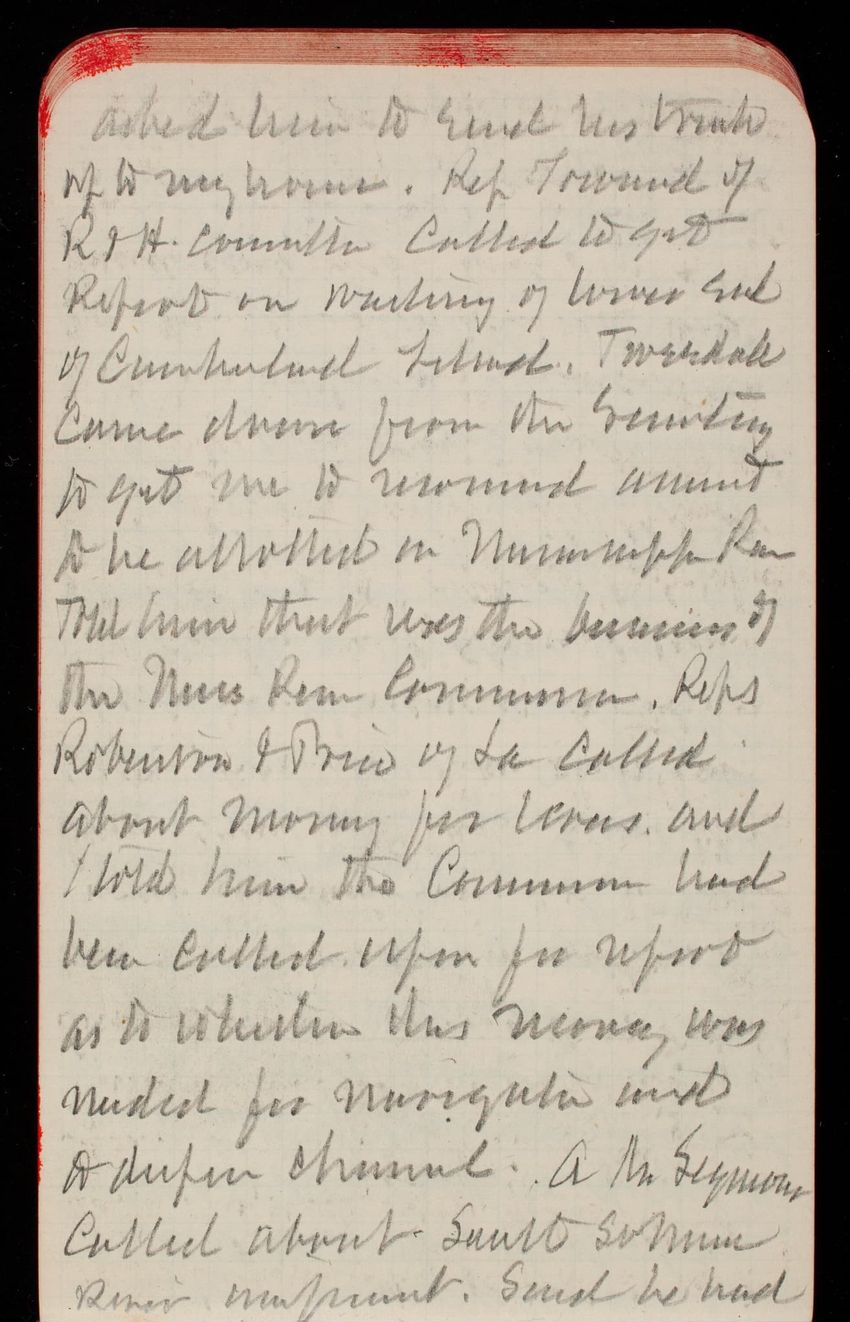 asked him to send his trunk
up to my house. Rep Townsend of
R & H. Committee Called to get
Report on washing of lower End
of Cumberland Island. Tweedale
Came down from the Secretary
to get me to recommend amount
to be allotted on Mississippi River
Told him that was the business of
the Miss River Commission. Reps
Robertson & Price of La Called
about Money for levees. and
I told him the Commission had
been Called upon for report
as to whether this Money was
needed for Navigation and
to deepen channel. A Mr Seymour
Called about Sault
River improvement. Said he had